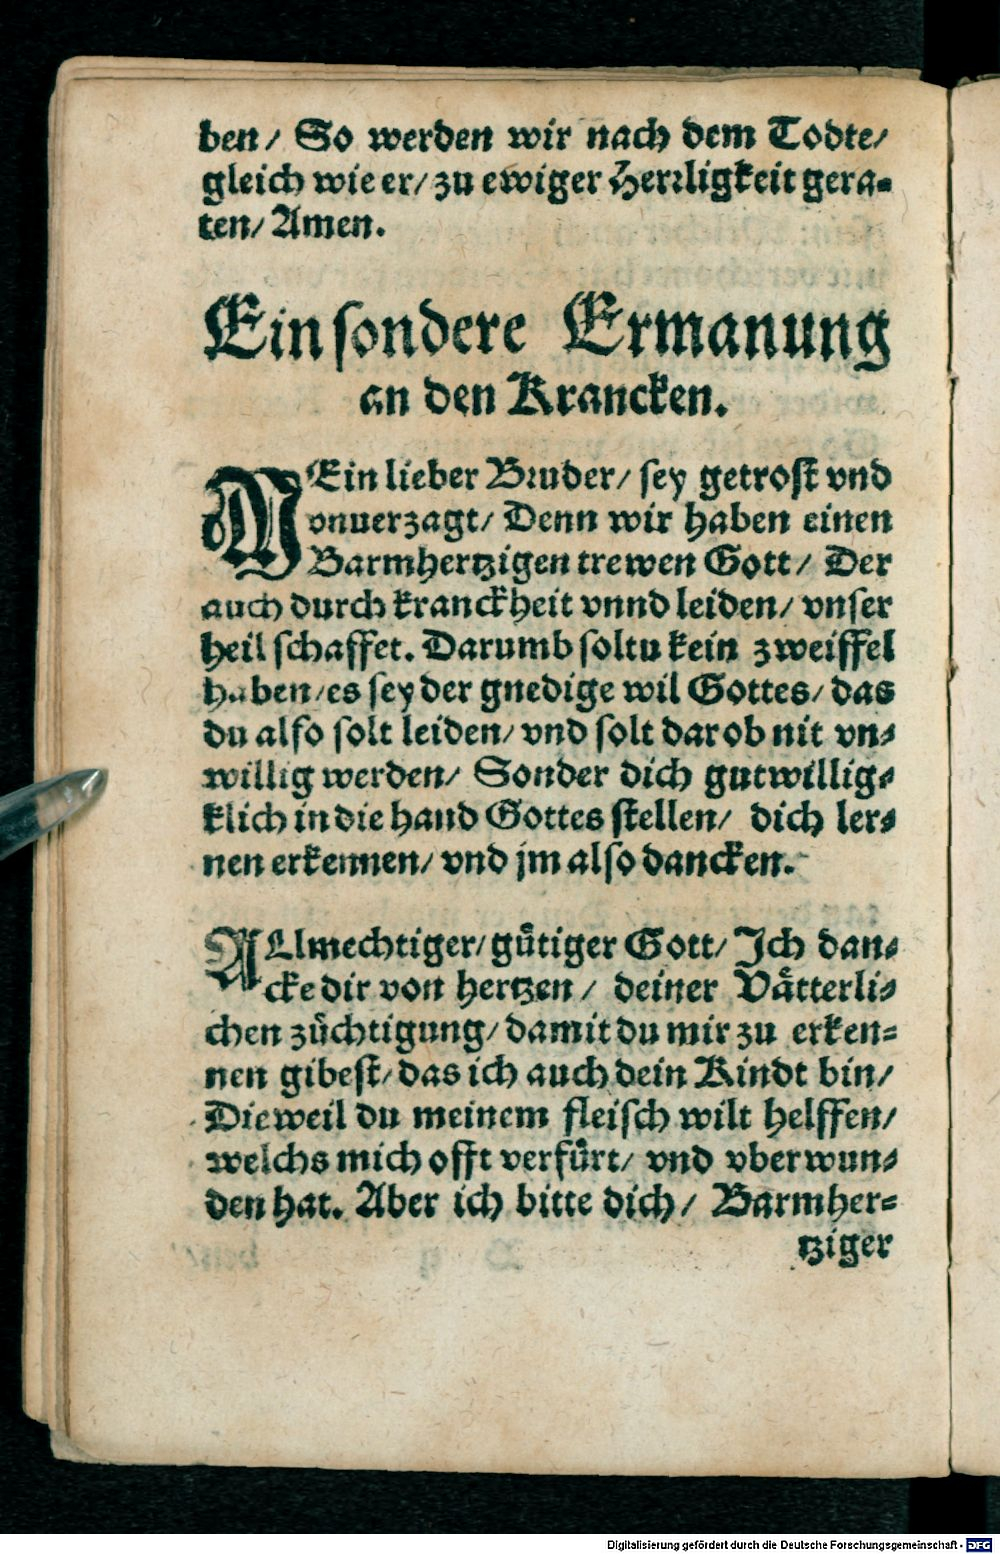 ben/ So werden wir nach dem Todte/
gleich wie er/ zu ewiger Herrligkeit gera-
ten/ Amen.
Ein sondere Ermanung
an den Krancken.
MEin lieber Bruder/ sey getrost vnd
vnuerzagt/ Denn wir haben einen
Barmhertzigen trewen Gott/ Der
auch durch kranckheit vnnd leiden/ vnser
heil schaffet. Darumb soltu kein zweiffel
haben/ es sey der gnedige wil Gottes/ das
du also solt leiden/ vnd solt darob nit vn-
willig werden/ Sonder dich gutwillig-
klich in die hand Gottes stellen/ dich ler-
nen erkennen/ vnd jm also dancken.
ALlmechtiger/ guͤtiger Gott/ Ich dan-
cke dir von hertzen/ deiner Vaͤtterli-
chen zuͤchtigung/ damit du mir zu erken-
nen gibest/ das ich auch dein Kindt bin/
Dieweil du meinem fleisch wilt helffen/
welchs mich offt verfuͤrt/ vnd vberwun-
den hat. Aber ich bitte dich/ Barmher-
tziger
Digitalisierung gefördert durch die Deutsche Forschungsgemeinschaft - DFG